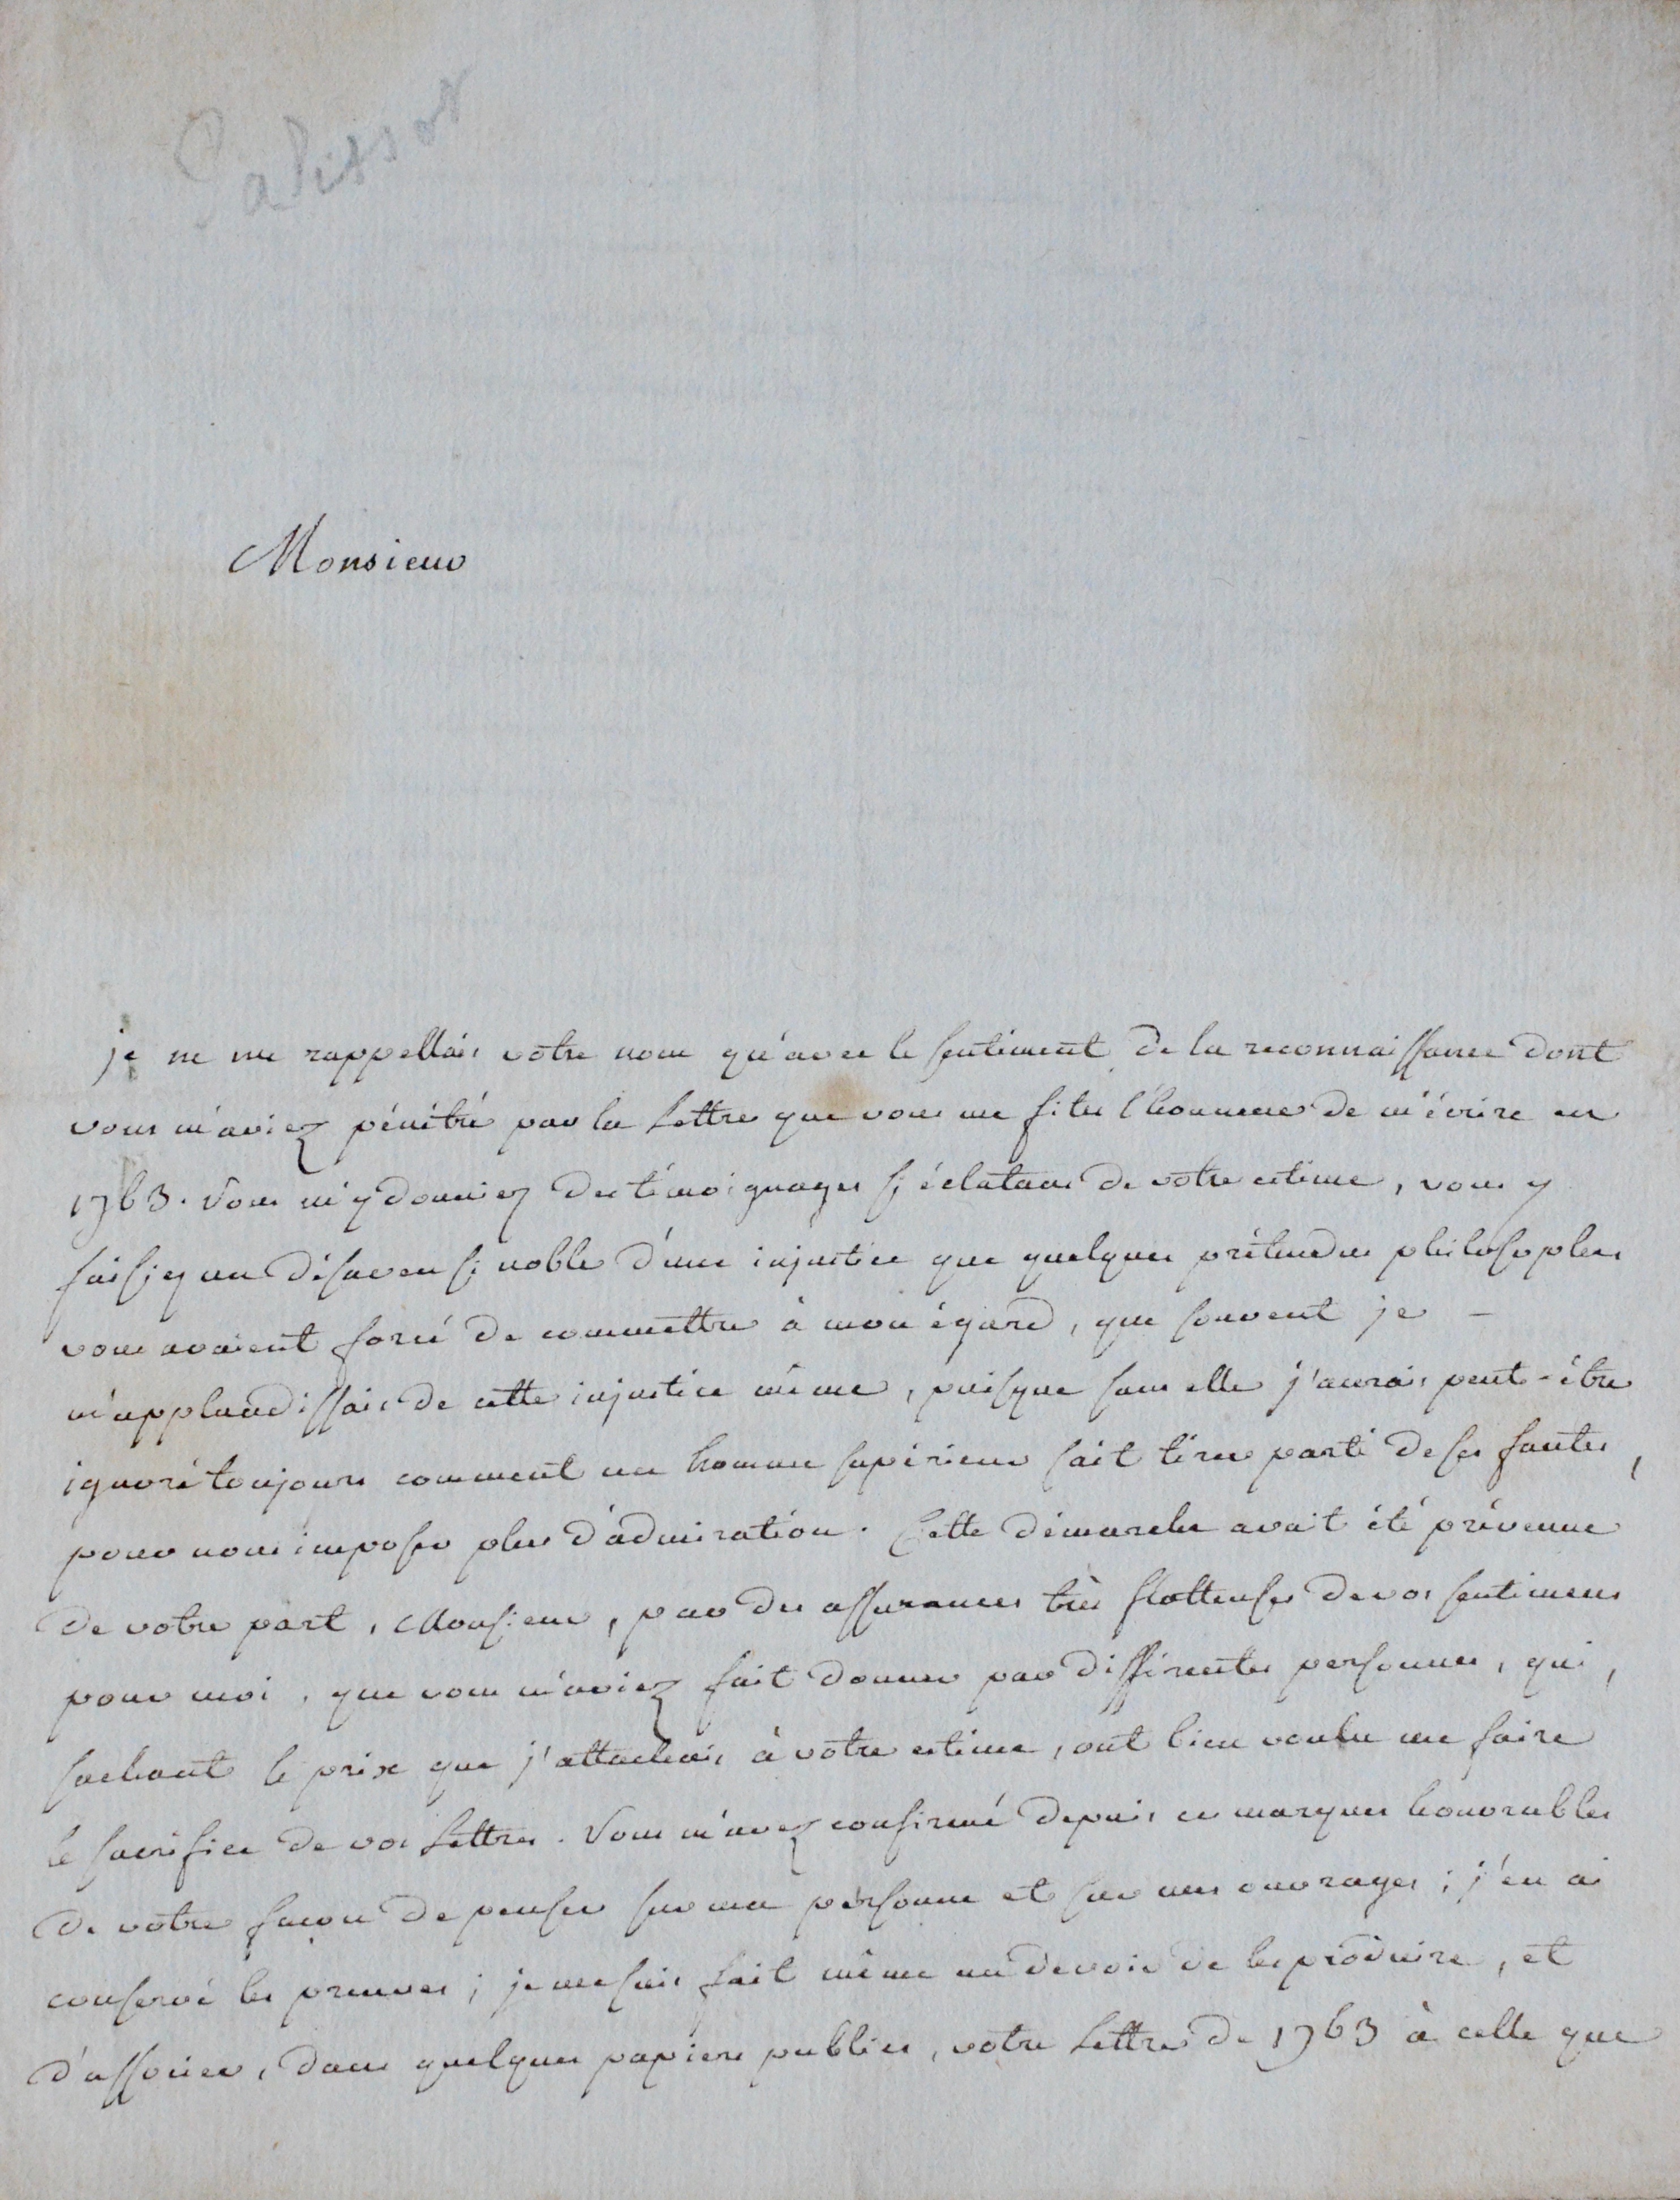 Palissot
Monsieur
je ne me rappellais votre nom qu'avec le sentiment de la reconnaissance dont
vous m'aviez pénétré par la Lettre que vous me fites l'honneur de m'écrire en
1763. Vous m'y donniez des témoignages si éclatans de votre estime, vous y
faisiez un désaveu si noble d'une injustice que quelques prétendus philosophes
vous avaient forcé de commettre à mon égard, que souvent je –
m'applaudissais de cette injustice même, puisque sans elle j'aurais peut-être
ignoré toujours comment un homme supérieur sait tirer parti de ses fautes,
pour nous imposer plus d'admiration. Cette démarche avait été prévenue
de votre part, Monsieur, par des assurances très flatteuses de vos sentimens
pour moi, que vous m'aviez fait donner par différentes personnes, qui,
sachant le prix que j'attachais à votre estime, ont bien voulu me faire
le sacrifice de vos Lettres. Vous m'avez confirmé depuis ces marques honorables
de votre façon de penser sur ma personne et sur mes ouvrages; j'en ai
conservé les preuves; je me suis fait même un devoir de les produire, et
d'associer, dans quelques papiers publics, votre Lettre de 1763 à celle que